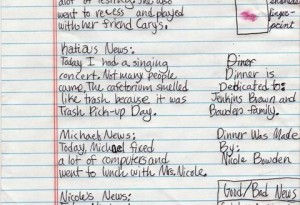 alot of testing. She also
went to recess and played
with her friend Carys.
finger-
point
Katia's News:
Today I had a singing
concert. Not many people
came. The cafetorium smelled
like trash because it was
Trash Pick-up Day.
Diner
Dinner is
Dedicated to:
Jenkins Brown and
Bowden-family.
Michael News:
Today, Michael fixed
a lot of computers and
went to lunch with Ms. Nicole.
Dinner Was Made
By:
Nicole Bowden
Nicole's News:
Good/Bad News